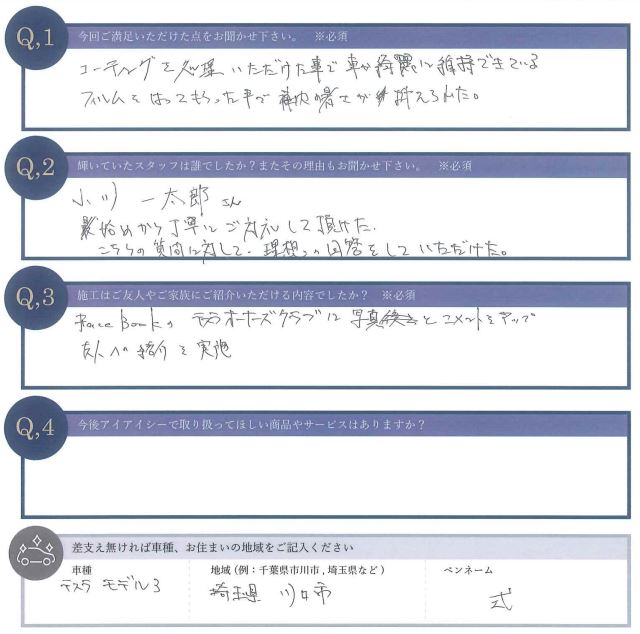 Q,1 今回ご満足いただけた点をお聞かせ下さい。 ※必須
コーティングを処理いただけた車で車が綺麗に維持できている
フィルムをはってもらった事で車内の暑さが抑えられた。
Q,2 輝いていたスタッフは誰でしたか？またその理由もお聞かせ下さい。 ※必須
小川 一太郎 さん
最始めから丁寧にご対応して頂けた.
こちらの質問に対して、理想の回答をしていただけた。
Q,3 施工はご友人やご家族にご紹介いただける内容でしたか？ ※必須
Face Bookの テスラオーナーズクラブに 写真とコメントをアップ
友人への紹介を実施
Q,4 今後アイアイシーで取り扱ってほしい商品やサービスはありますか？
差支え無ければ車種、お住まいの地域をご記入ください
車種 地域 (例：千葉県市川市 , 埼玉県など) ペンネーム
テスラ モデル3 埼玉県 川口市 式